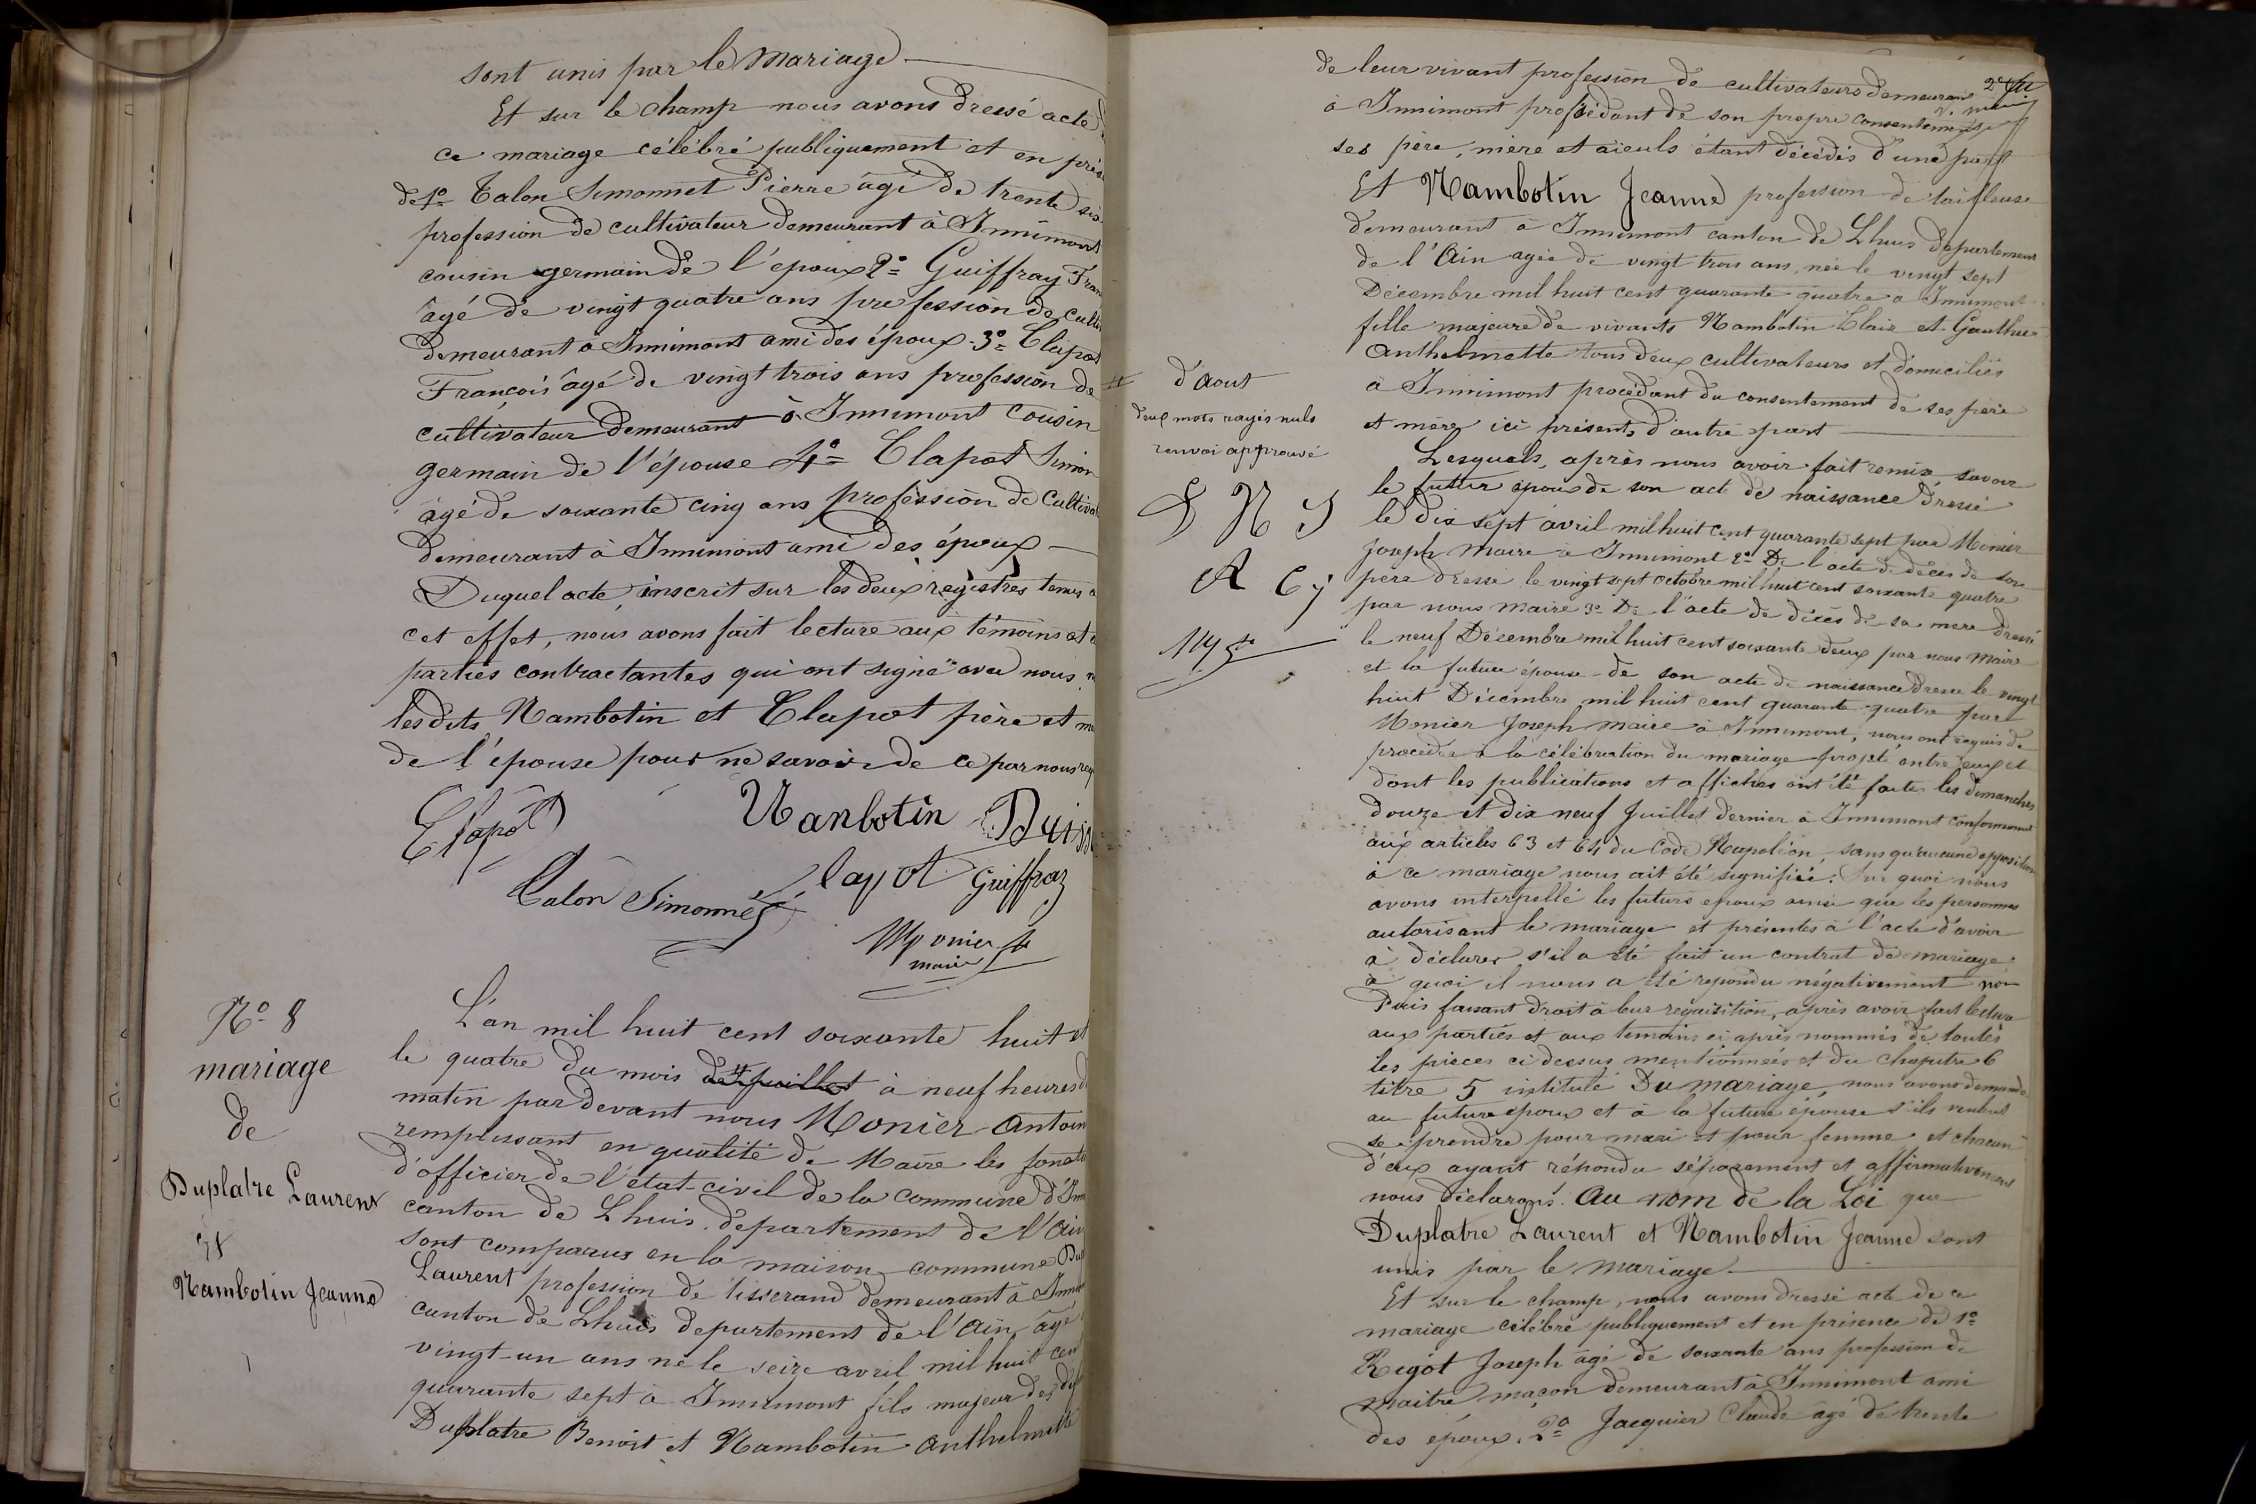 sont unis par le mariage
Et sur le champ nous avons dressé acte
ce mariage célébré publiquement et en prés
de 1º Talon Simonnet Pierre âgé de trente six
profession de cultivateur demeurant à Innimont
cousin germain de l'époux 2º Guiffray Fran
âgé de vingt quatre ans profession de culti
demeurant à Innimont ami des époux. 3º Clapot
François âgé de vingt trois ans profession de
cultivateur demeurant à Innimont cousin
germain de l'épouse 4º Clapot Simon
âgé de soixante cinq ans profession de cultivat
demeurant à Innimont ami des époux
Duquel acte, inscrit sur les deux registres tenus à
cet effet, nous avons fait lecture aux témoins et
parties contractantes qui ont signé avec nous
les dits Nambotin et Clapot père et m
de l'épouse pour ne savoir de ce par nous req
Clapot Nanbotin
lapot Guiffraz
Talon Simonnet
Monier
maire
Nº 8
mariage
de
Duplatre Laurent
et
Nambotin Jeanne
L'an mil huit cent soixante huit et
le quatre du mois de juillet à neuf heures d
matin par devant nous Monier Antoin
remplissant en qualité de Maire les foncti
d'officier de l'état-civil de la commune d'Inn
canton de Lhuis département de l'Ain
sont comparus en la maison commune Du
Laurent profession de tisserand demeurant à Innim
canton de Lhuis département de l'Ain âgé
vingt-un ans né le seize avril mil huit cent
quarante sept à Innimont fils majeur des déf
Duplatre Benoît et Nambotin Anthelmette
de leur vivant profession de cultivateurs demeurant
à Innimont procédant de son propre consentement
ses père, mère et aïeuls étant décédés d'une part
Et Nambotin Jeanne profession de tailleuse
demeurant à Innimont canton de Lhuis département
de l'Ain agée de vingt trois ans, née le vingt sept
Décembre mil huit cent quarante quatre à Innimont
fille majeure de vivants Nambotin Claie et Gauthier
Anthelmette tous deux cultivateurs et domiciliés
à Innimont procédant du consentement de ses père
et mère ici présents d'autre part
Lesquels, après nous avoir fait remise, savoir
le futur époux de son acte de naissance dressé
le dix sept avril mil huit cent quarante sept par Monier
Joseph Maire à Innimont 2º De l'acte de décès de son
père dressé le vingt sept octobre mil huit cent soixante quatre
par nous maire 3º De l'acte de décès de sa mère dressé
le neuf Décembre mil huit cent soixante deux par nous Maire
et la future épouse de son acte de naissance dressé le vingt
huit Décembre mil huit cent quarante quatre par
Monier Joseph maire à Innimont, nous ont requis de
procéder à la célébration du mariage projeté entre eux et
dont les publications et affiches ont été faites les dimanches
douze et dix neuf Juillet dernier à Innimont conformément
aux articles 63 et 64 du Code Napoléon, sans qu'aucune opposition
à ce mariage nous ait été signifiée. Sur quoi nous
avons interpellé les futurs époux ainsi que les personnes
autorisant le mariage et présentes à l'acte d'avoir
à déclarer s'il a été fait un contrat de mariage
à quoi il nous a été répondu négativement non
Puis faisant droit à leur réquisition, après avoir fait lecture
aux parties et aux témoins ci après nommés de toutes
les pièces ci dessus mentionnées et du chapitre 6
titre 5 intitulé Du mariage, nous avons demandé
au futur époux et à la future épouse s'ils veulent
se prendre pour mari et pour femme et chacun
d'eux ayant répondu séparément et affirmativement
nous déclarons. Au nom de la Loi que
Duplatre Laurent et Nambotin Jeanne sont
unis par le mariage
Et sur le champ, nous avons dressé acte de ce
mariage célébré publiquement et en présence de 1º
Rigot Joseph âgé de soixante ans profession de
maître maçon demeurant à Innimont ami
des époux. 2º Jacquier Claude âgé de trente
d'aout
deux mots rayés nuls
renvoi approuvé